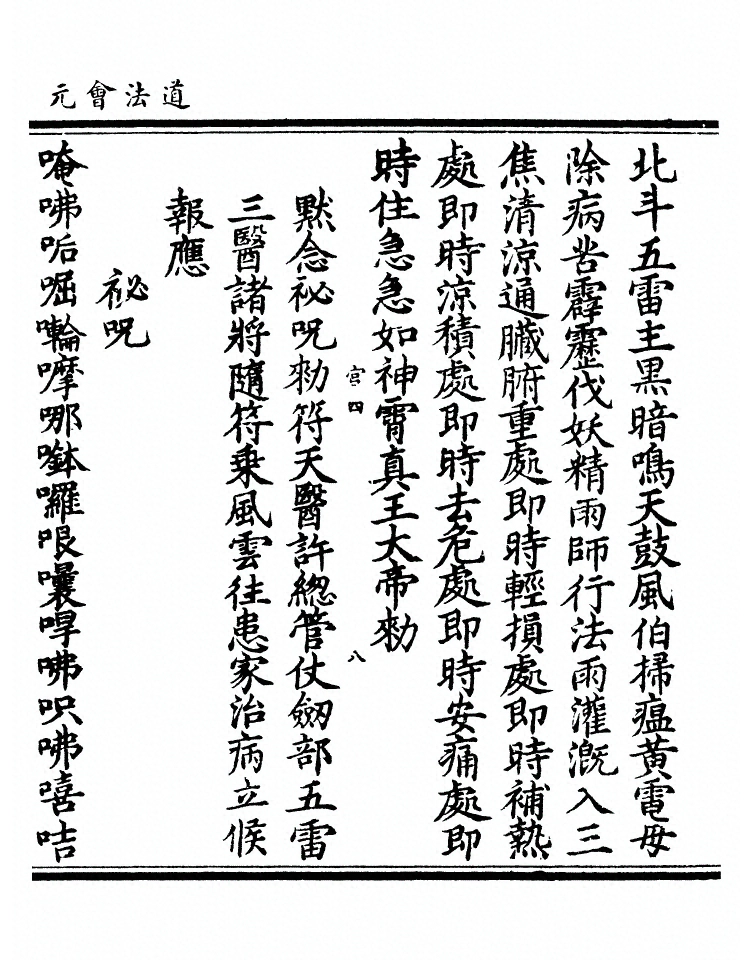 道法會元
北斗五雷主黑暗鳴天鼓風伯掃瘟黄電母
除病苦霹靂伐妖精雨師行法雨灌溉入三
焦清涼通臟腑重處即時輕損處即時補熱
處即時涼積處即時去危處即時安痛處即
時住急急如神霄真王大帝勑
宫四
八
默念祕呪勑符天醫許總管仗劒部五雷
三醫諸將隨符乗風雲往患家治病立候
報應
祕呪
唵咈㖃啒㘄摩哪𠸹囉哏囊哻咈呮咈嘻咭